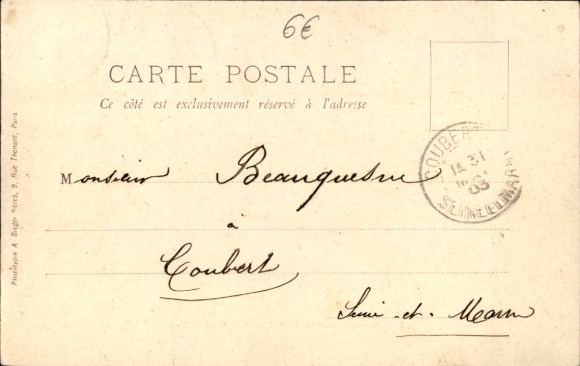 6€
CARTE POSTALE
Ce côté est exclusivement réservé à l'adresse
COUBERT
31
03
SEINE-ET-MARNE
Monsieur Beauquesne
à
Coubert
Seine-et-Marne
Phototypie A. Breger Frères, 9, Rue Thénard, Paris